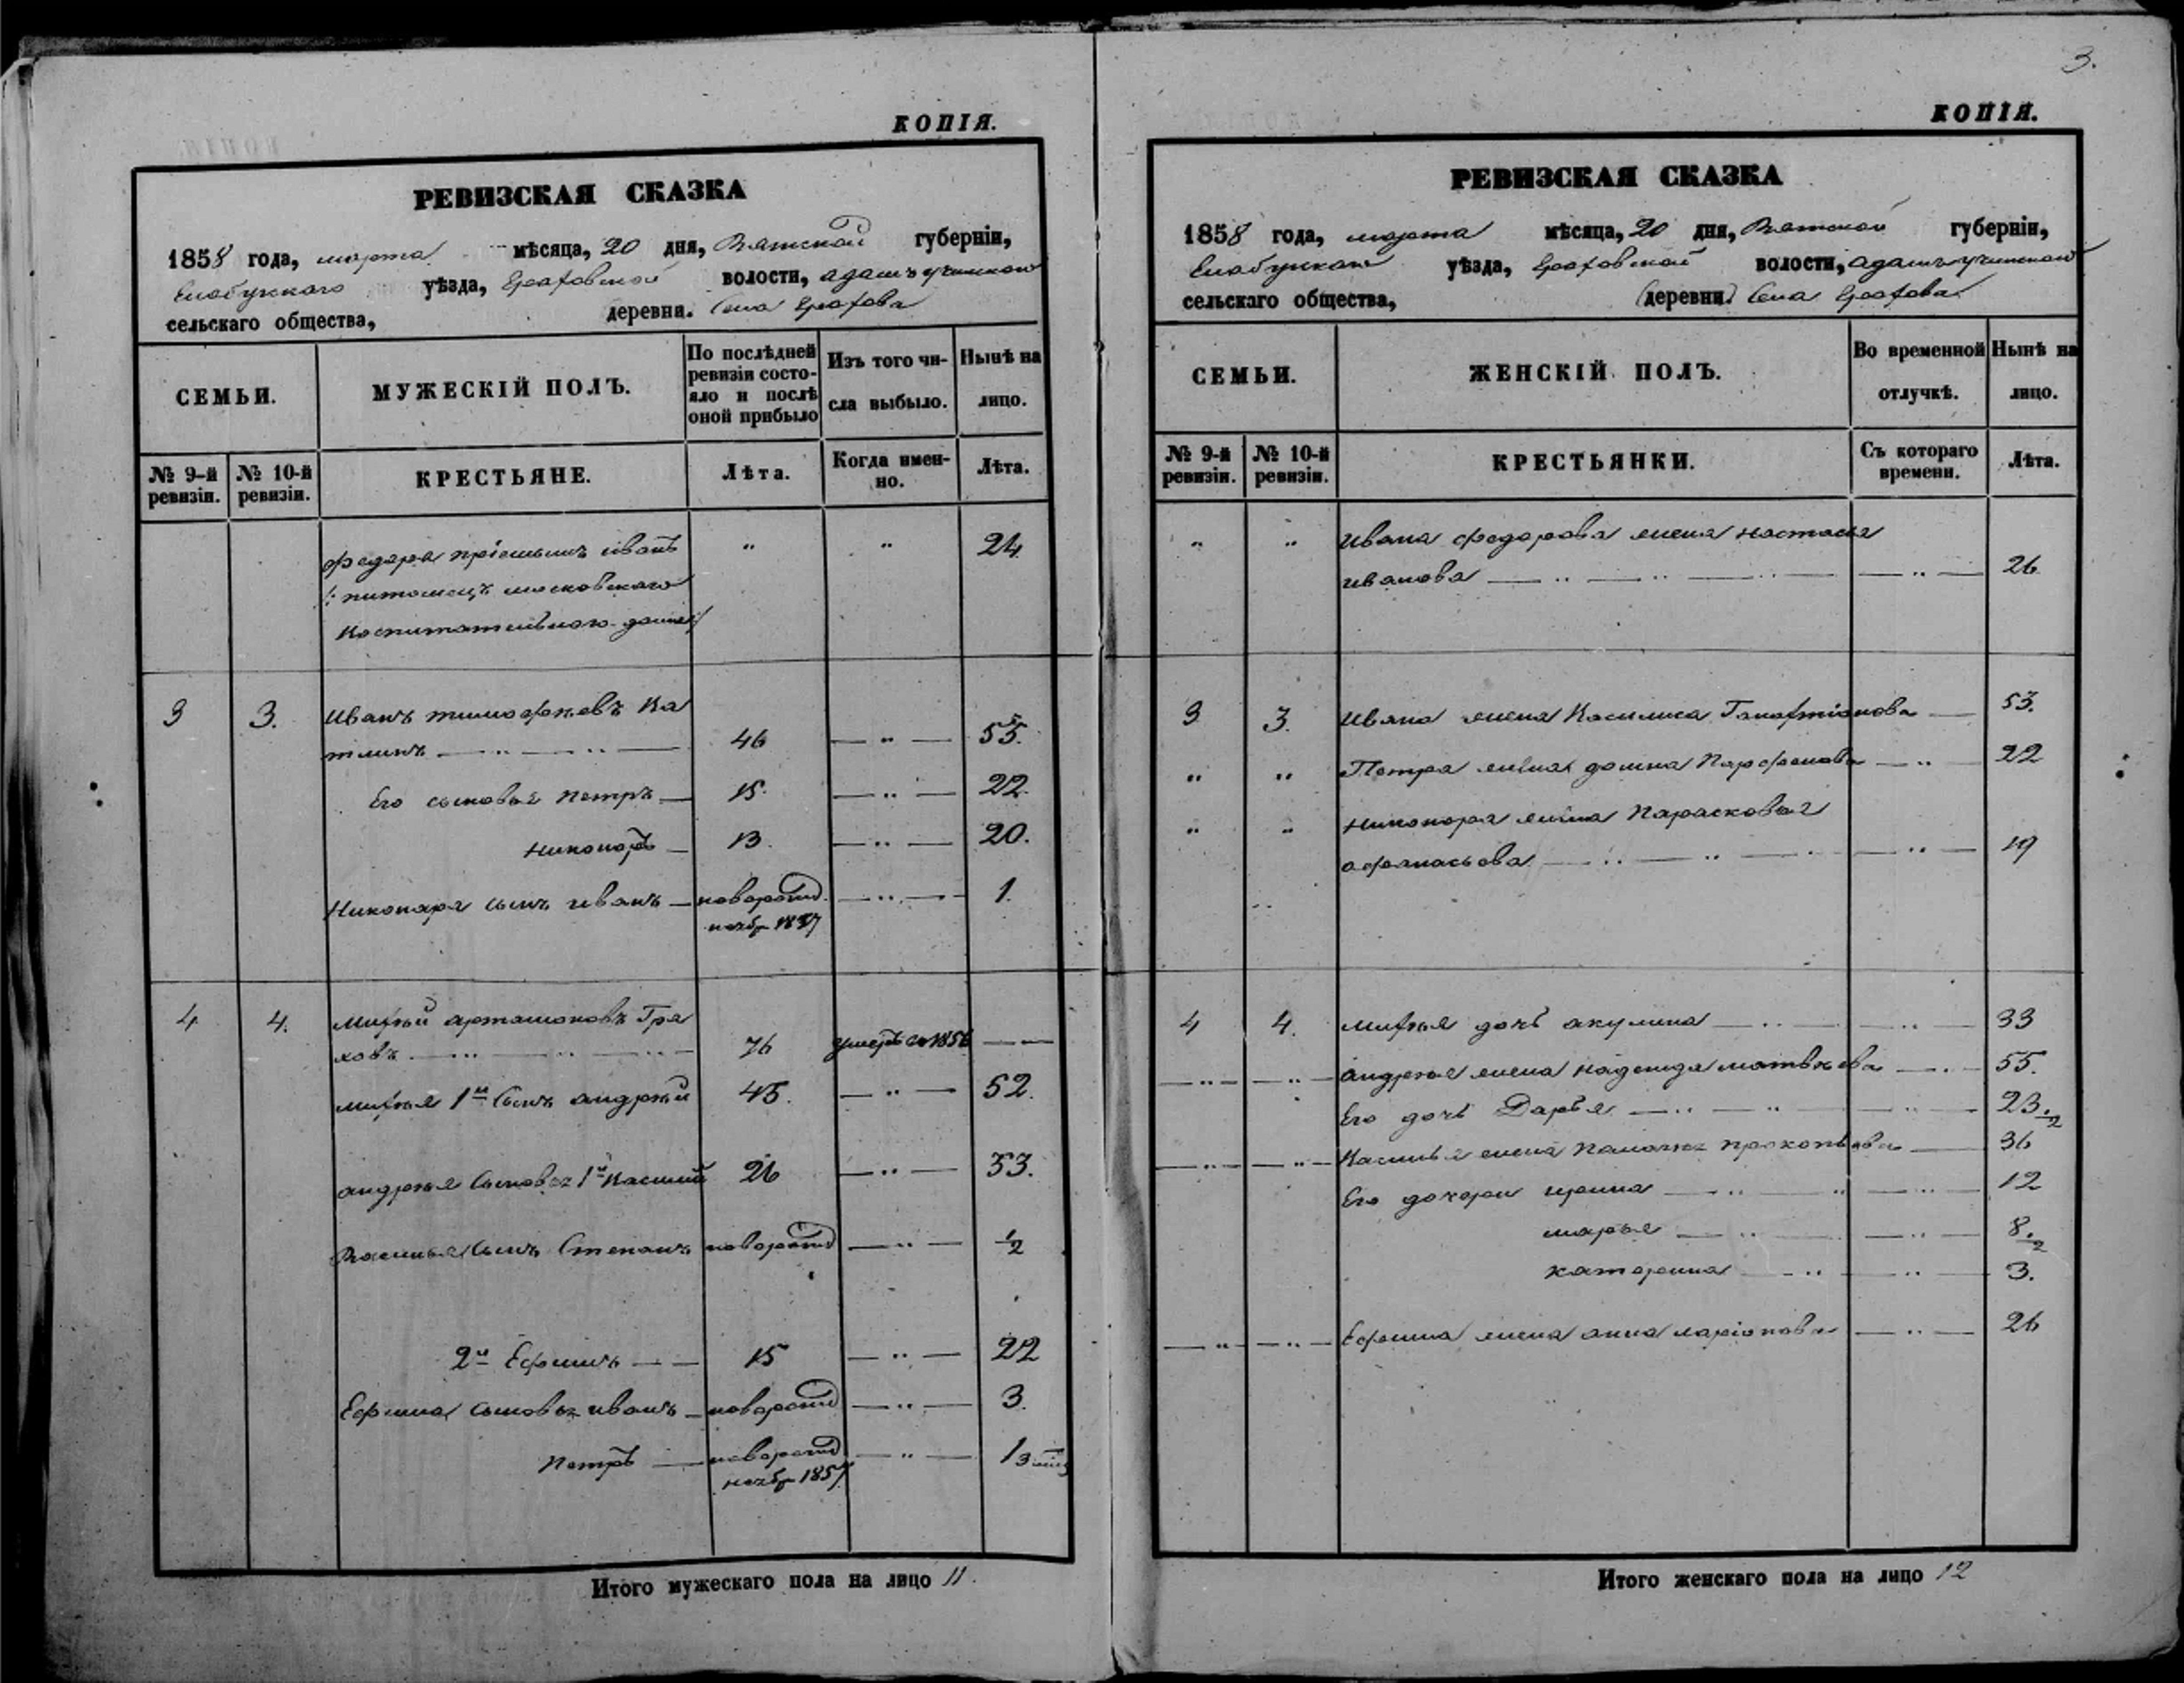 КОПІЯ.
РЕВИЗСКАЯ СКАЗКА
1858 года, марта мѣсяца, 20 дня, Вятской губерніи,
Елабужскаго уѣзда, Граховской волости,
сельскаго общества, деревни. Села Грахова
СЕМЬИ.
МУЖЕСКІЙ ПОЛЪ.
По послѣдней ревизіи состояло и послѣ оной прибыло
Изъ того числа выбыло.
Нынѣ на лицо.
№ 9-й ревизіи.
№ 10-й ревизіи.
КРЕСТЬЯНЕ.
Лѣта.
Когда именно.
Лѣта.
Федора пріемышъ иванъ " " 24
/: питомецъ московскаго
воспитательнаго дома :/
3 3. Иванъ тимофѣевъ Ка
тлинъ 46 " 55.
Его сыновья петръ 15. " 22.
никоноръ 13. " 20.
Никонора сынъ иванъ новорожд. " 1.
ноябр 1857
4 4. Михѣй Гра
ховъ 76 умеръ въ 1856
михѣя 1й сынъ андрѣй 45. " 52.
андрѣя сыновья 1й Василій 26 " 33.
Василья сынъ Степанъ новорожд " 1/2
2й Ефимъ 15 " 22
Ефима сыновья иванъ новорожд " 3.
петръ новорожд " 1
ноябр 1857
Итого мужескаго пола на лицо 11.
3.
КОПІЯ.
РЕВИЗСКАЯ СКАЗКА
1858 года, марта мѣсяца, 20 дня, Вятской губерніи,
Елабужскаго уѣзда, Граховской волости,
сельскаго общества, (деревни) Села Грахова
СЕМЬИ.
ЖЕНСКІЙ ПОЛЪ.
Во временной отлучкѣ.
Нынѣ на лицо.
№ 9-й ревизіи.
№ 10-й ревизіи.
КРЕСТЬЯНКИ.
Съ котораго времени.
Лѣта.
" " Ивана федорова жена настасья
иванова " 26
3 3. Ивана жена Василиса 53.
" " Петра жена домна Парфенова " 22
" " Никонора жена Парасковья
афанасьева " 19
4 4. михѣя дочь акулина " 33
" " андрѣя жена надежда матвѣева " 55.
Его дочь Дарья " 23.
" " Василья жена прокопьева 36
Его дочери ирина " 12
марья " 8.
катерина " 3.
" " Ефима жена анна ларіонова " 26
Итого женскаго пола на лицо 12